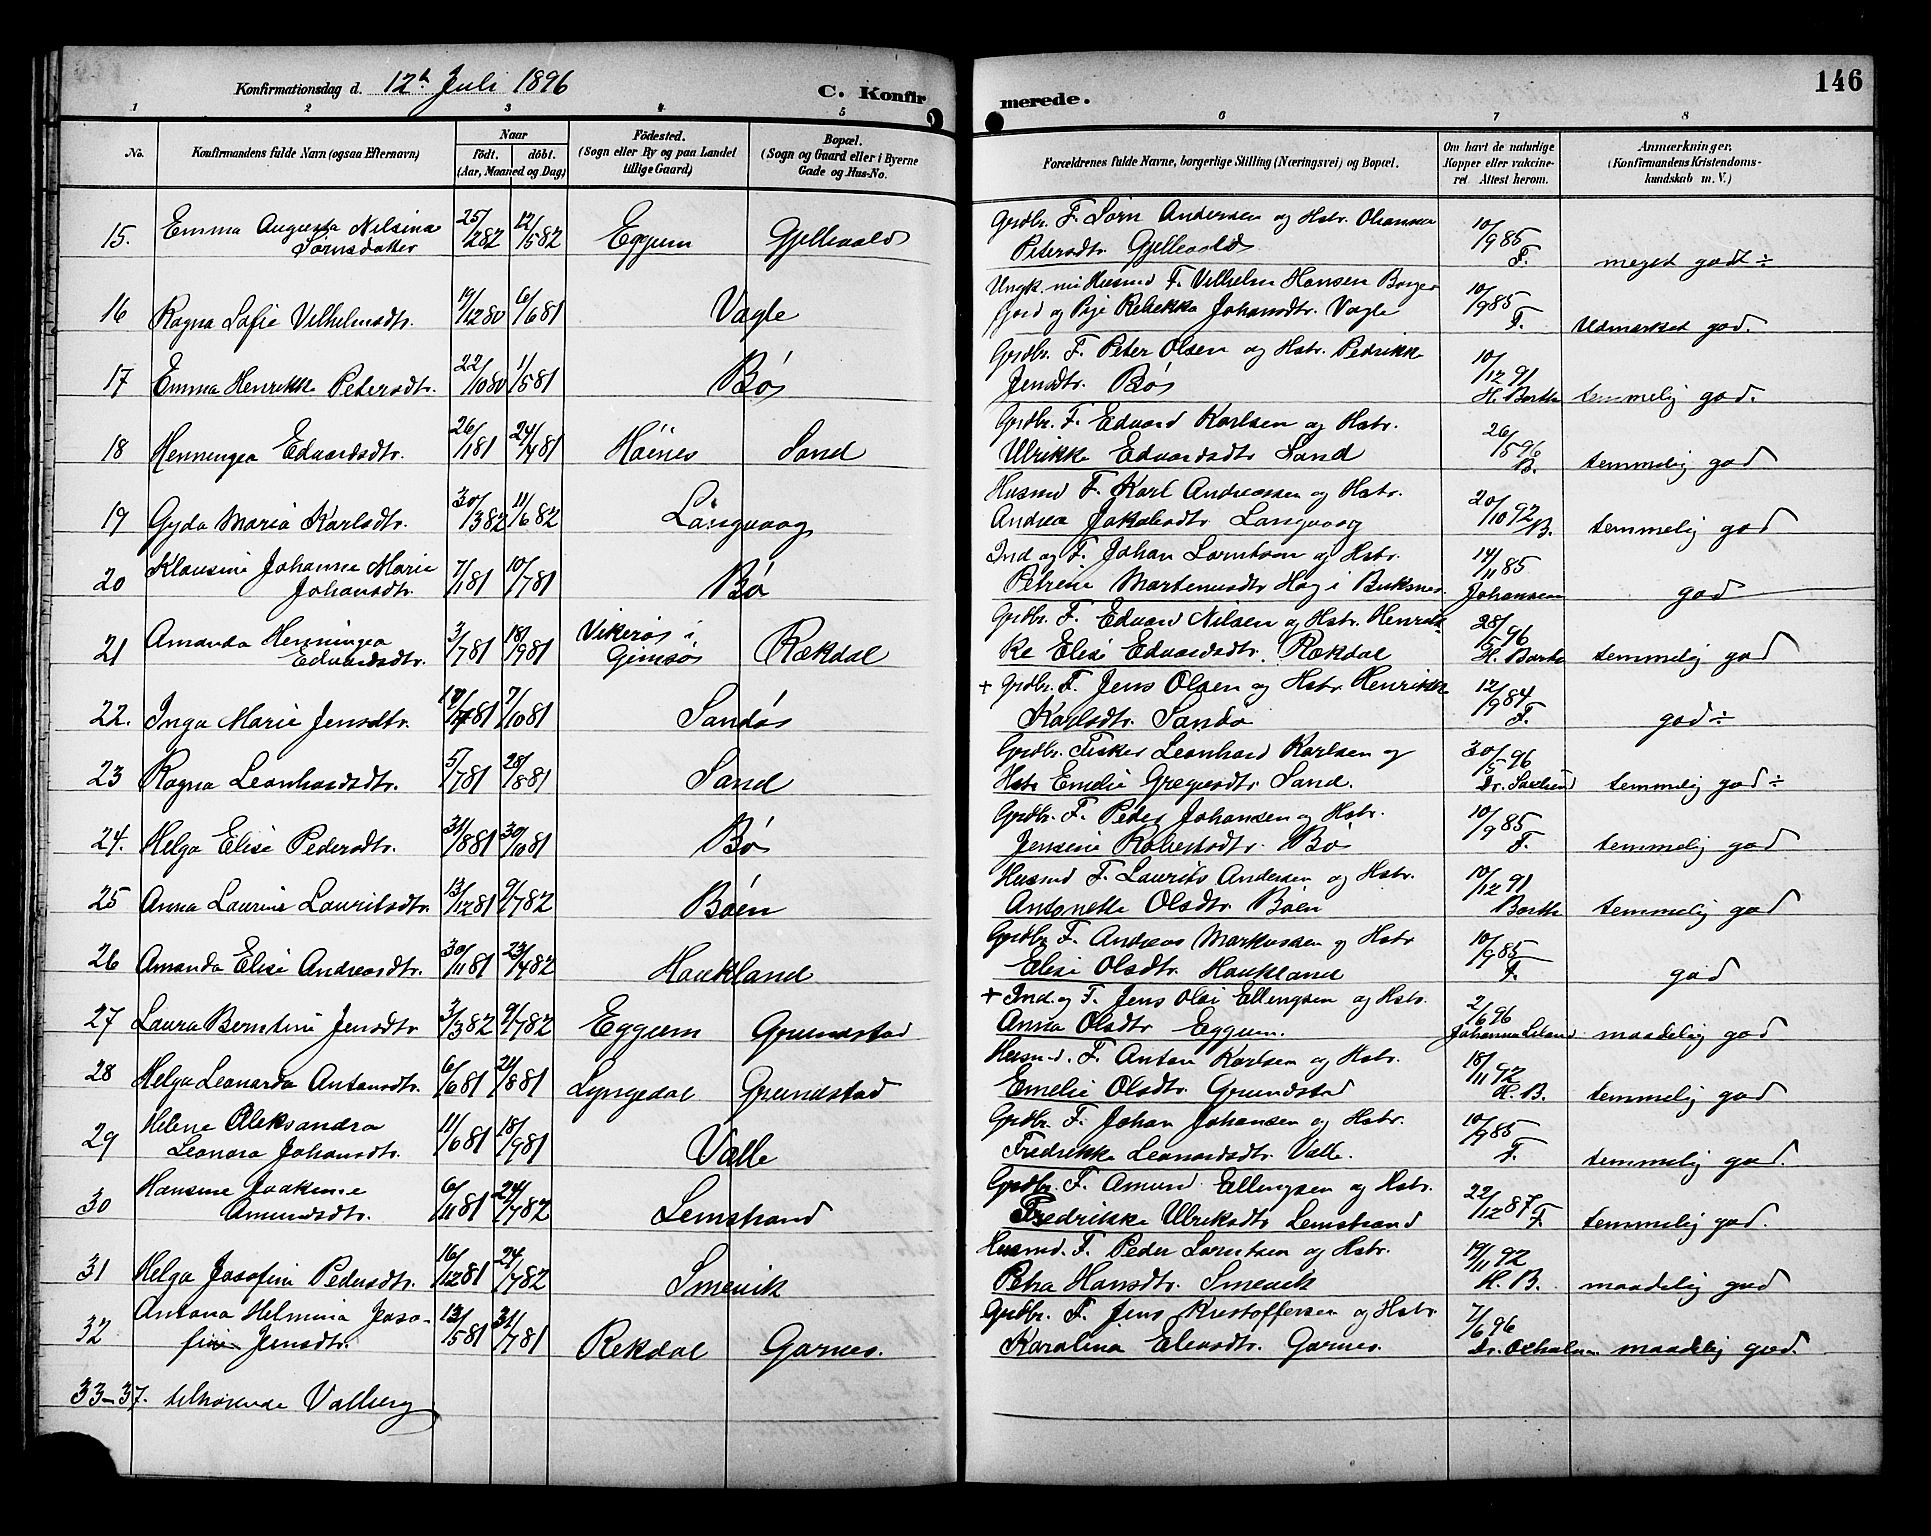 Konfirmationsdag d. 12te Juli 1896
C. Konfir
merede.
146
1 2 3 4 5 6 7 8
No.
Konfirmandens fulde Navn (ogsaa Efternavn)
Naar
født. døbt.
(Aar, Maaned og Dag)
Födested.
(Sogn eller By og paa Landet
tillige Gaard.)
Bopæl.
(Sogn og Gaard eller i Byerne
Gade og Hus-No.
Forældrenes fulde Navne, borgerlige Stilling (Næringsvei) og Bopæl.
Om havt de naturlige
Kopper eller vakcine-
ret. Attest herom.
Anmærkninger.
(Konfirmandens Kristendoms-
kundskab m. V.)
15. Emma Augusta Nilsina 25/282 12/582 Eggum Gjellevold Grdbr. F. Sörn Andersen og Hstr. Olsanna 10/985
Sörnsdatter Petersdtr. Gjellevold F. meget godt ÷
16 Ragna Sofie Vilhelmsdtr. 19/1280 6/681 Vagle Ungk. nu Husmd F. Vilhelm Hansen Borge 10/985
fjord og Pige Rebekka Johansdtr. Vagle F. Udmærket god.
17 Emma Henrikke Petersdtr. 22/1080 1/581 Bös Grdbr. F. Peter Olsen og Hstr. Pedrikke 10/1291
Jensdtr. Bös H. Barth temmelig god.
18 Henningea Edvardsdtr. 26/181 24/481 Höines Sand Grdbr. F. Edvard Karlsen og Hstr. 26/596
Ulrikke Edvardsdtr Sand B. temmelig god
19 Gyda Maria Karlsdtr. 30/382 11/682 Langvaag Husmd F. Karl Andreassen og Hstr. 20/1092
Andrea Jakobsdtr Langvaag B. temmelig god
20 Klausine Johanne Marie 7/181 10/781 Bö Ind og F. Johan Sörntsen og Hstr. 14/1185
Johansdtr. Petrine Martenusdtr Hag i Buksnes Johansen god
21 Amanda Henningea 3/781 18/981 Vikerös i Rækdal Grdbr. F. Edvard Nilsen og Hstr. Henrik- 28/596
Edvardsdtr. Gimsös ke Elise Edvardsdtr. Rækdal H. Barth temmelig god
22. Inga Marie Jensdtr. 7/1081 Sandös + Grdbr. F. Jens Olsen og Hstr Henrikke 12/984
Karlsdtr. Sandö F. god ÷
23 Ragna Leonhardsdtr. 5/781 28/881 Sand Grdbr. Fisker Leonhard Karlsen og 30/596
Hstr Emelie Gregersdtr Sand. temmelig god ÷
24. Helga Elise Pedersdtr. 31/881 30/1081 Bö Grdbr. F. Peder Johansen og Hstr. 10/985
Jensine Robertsdtr. Bö F. temmelig god
25 Anna Laurine Lauritsdtr. 13/1281 9/782 Böen Husmd F. Laurits Andersen og Hstr. 10/1291
Antonette Olsdtr. Böen Barth temmelig god
26 Amanda Elise Andreasdtr. 30/1181 23/482 Haukland Grdbr F. Andreas Markussen og Hstr 10/985
Elise Olsdtr. Haukland F. god
27 Laura Berntine Jensdtr 3/382 9/782 Eggum Grundstad + Ind. og F. Jens Olai Ellingsen og Hstr. 2/696
Anna Olsdtr Eggum. Johanna Leland maadelig god
28 Helga Leonarda Antonsdtr. 6/681 21/881 Lyngedal Grundstad Husmd. F. Anton Karlsen og Hstr. 18/1192
Emelie Olsdtr. Grundstad H. B. temmelig god
29 Helene Aleksandra 11/681 18/981 Valle Grdbr. F. Johan Johansen og Hstr. 10/985
Leonora Johansdtr. Fredrikke Leonardsdtr. Valle. F. temmelig god.
30 Hansine Joakimie 6/1181 24/782 Lemstrand Grdbr. F. Amund Ellingsen og Hstr. 22/1287
Amundsdtr. Fredrikke Ulriksdtr Lemstrand F. temmelig god.
31 Helga Josofine Pedersdtr. 16/1281 24/782 Smevik Husmd. F. Peder Sörntsen og Hstr. 19/1192
Petra Hansdtr. Smevik H. B. maadelig god
32 Antona Helmina Joso- 13/581 31/781 Rekdal Garnes. Grdbr. F. Jens Kristoffersen og Hstr 7/696
fine Jensdtr. Karolina Eliasdtr. Garnes. maadelig god.
33-37. tilhørende Valberg